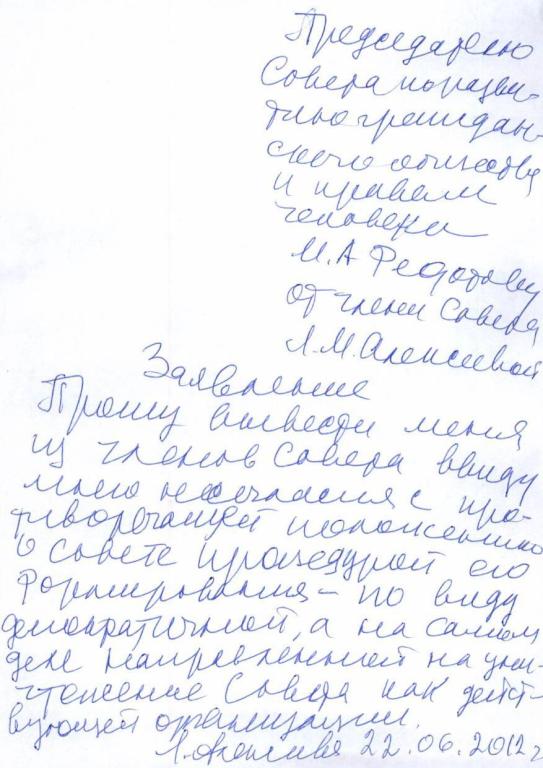 Председателю
Совета по разви-
тию граждан-
ского общества
и правам
человека
М.А Федотову
от члена Совета
Л.М.Алексеевой
Заявление
Прошу вывести меня
из членов Совета ввиду
моего несогласия с про-
тиворечащей положению
о Совете процедурой его
формирования – по виду
демократичной, а на самом
деле направленной на уни-
чтожение Совета как дейст-
вующей организации.
Л.Алексеева 22.06.2012г